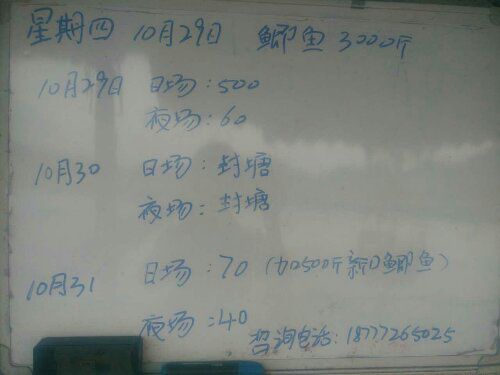 星期四 10月29日 鲫鱼 3000斤
10月29日 日场:500
夜场:60
10月30 日场:封塘
夜场:封塘
10月31 日场:70 (加2500斤新口鲫鱼)
夜场:40 咨询电话:18777265025